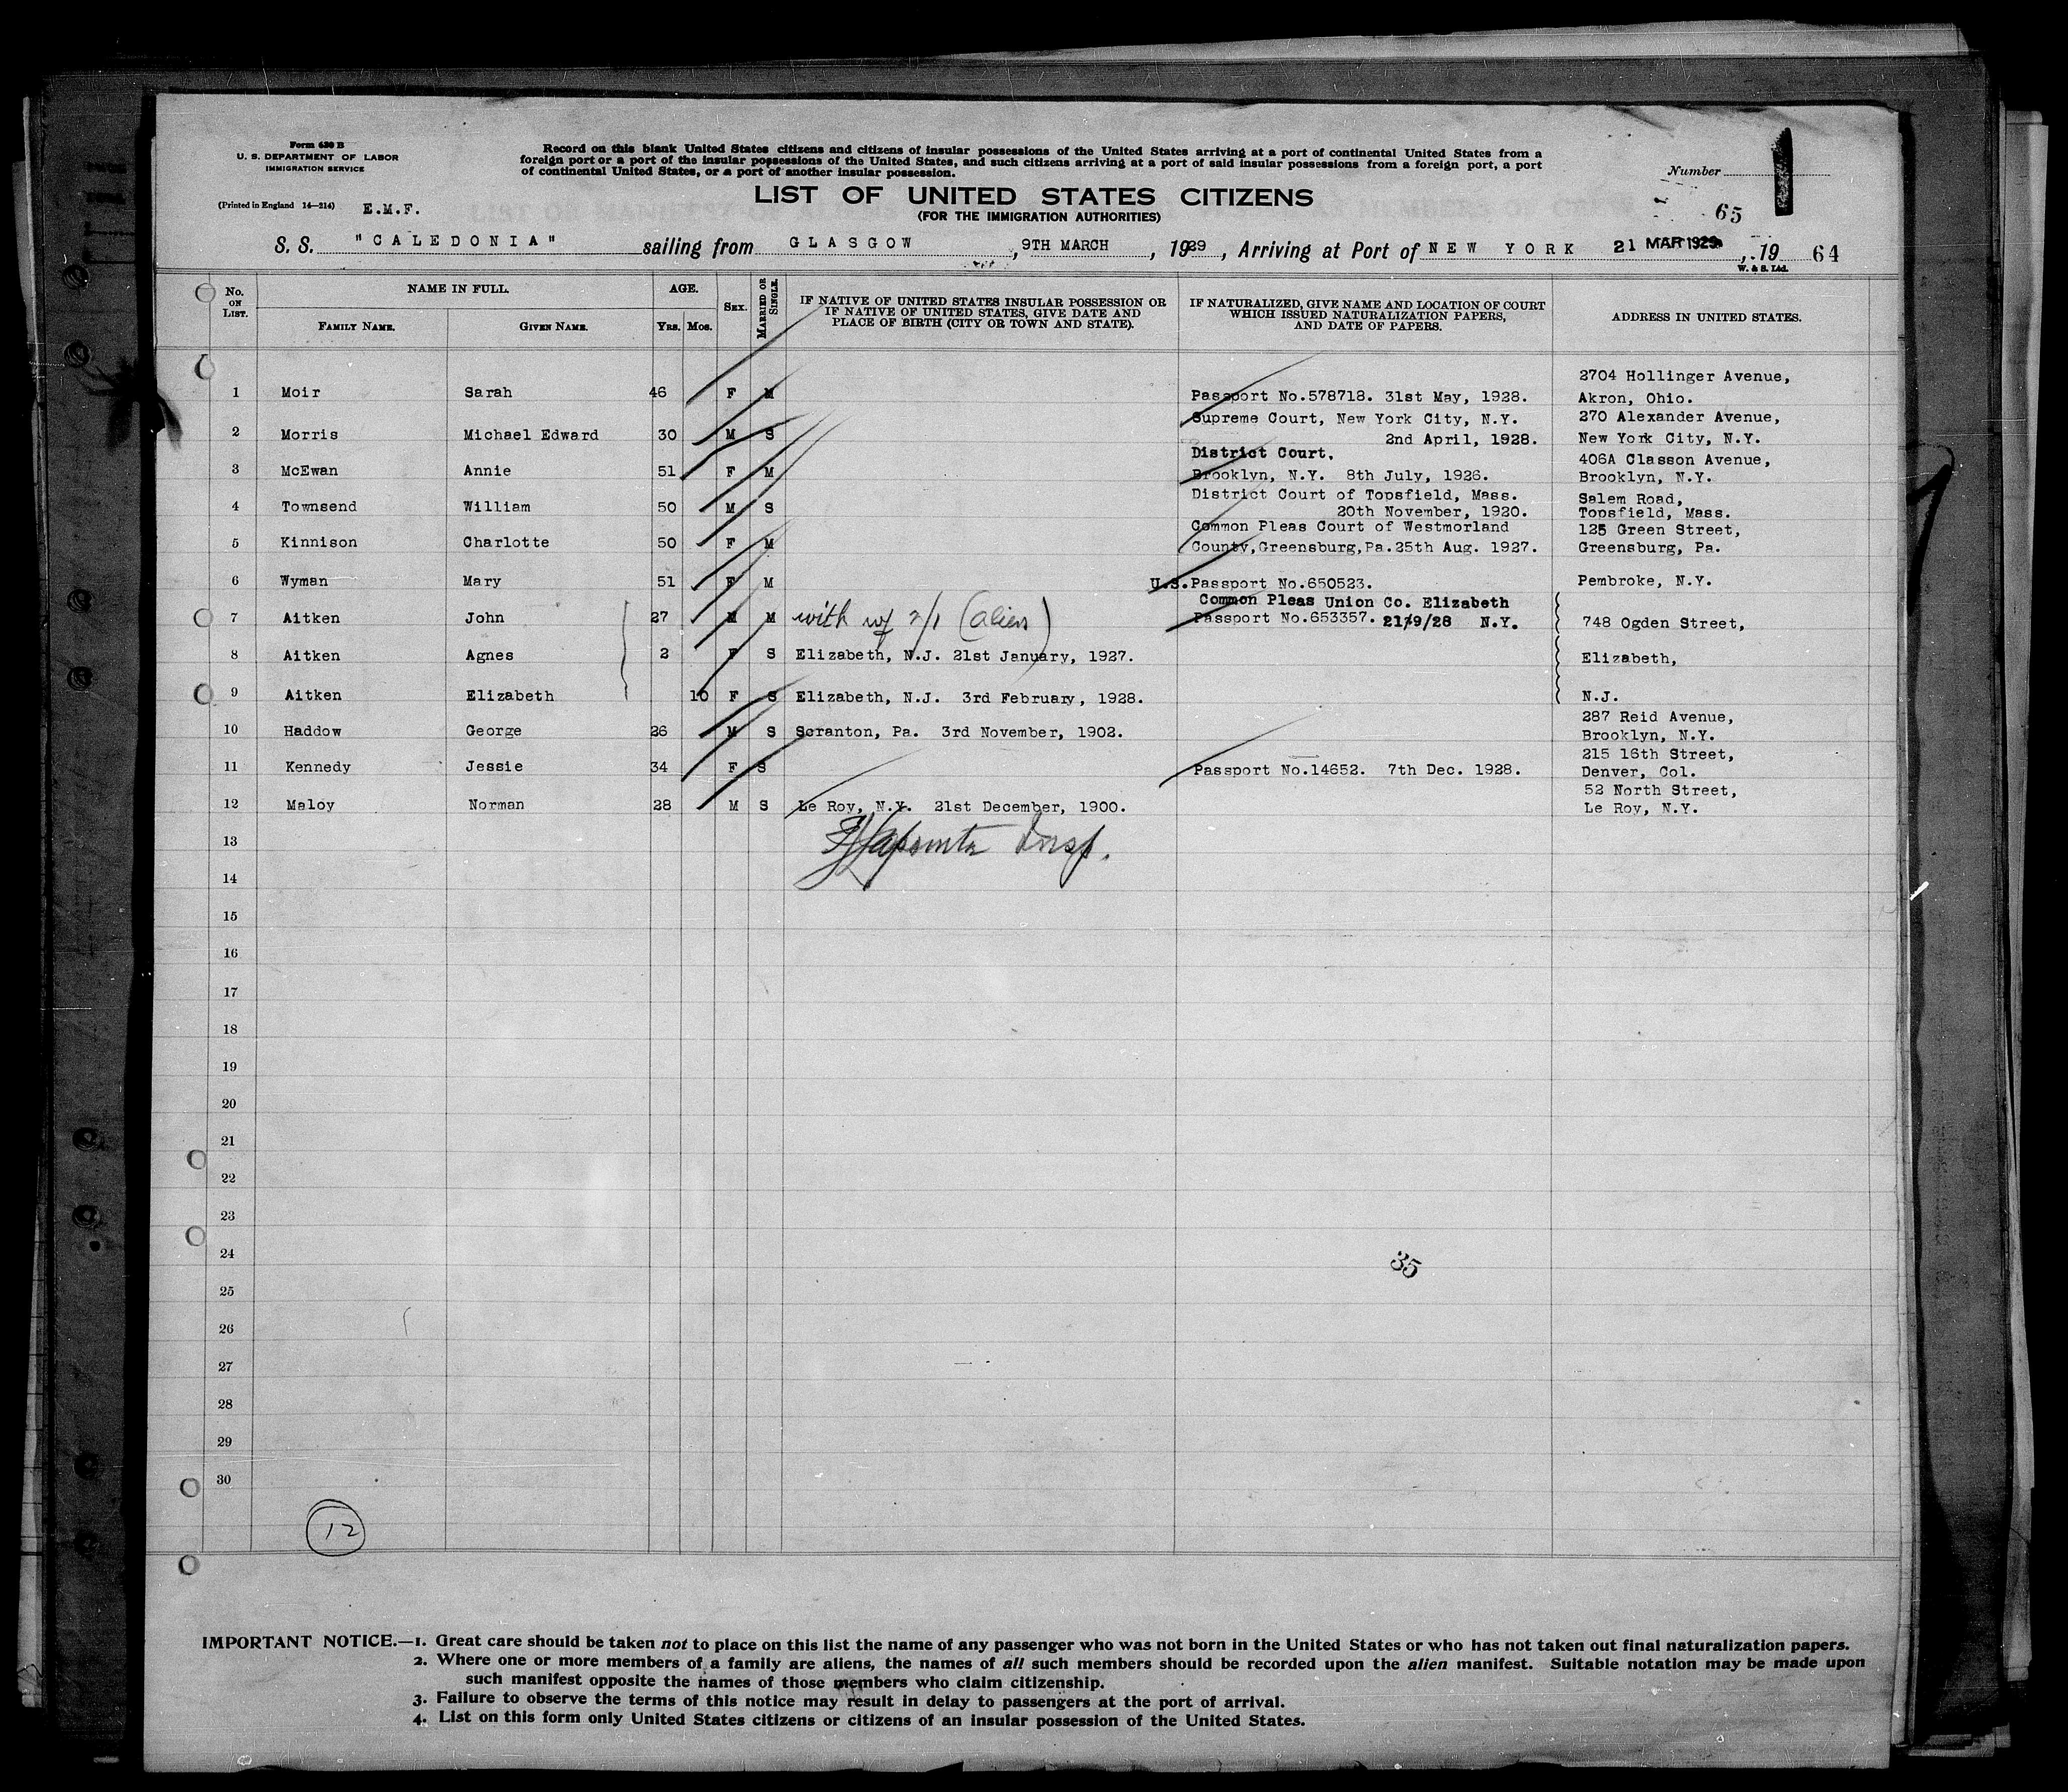 Form 630 B
U. S. DEPARTMENT OF LABOR
IMMIGRATION SERVICE
(Printed in England 14—214)
E.M.F.
Record on this blank United States citizens and citizens of insular possessions of the United States arriving at a port of continental United States from a
foreign port or a port of the insular possessions of the United States, and such citizens arriving at a port of said insular possessions from a foreign port, a port
of continental United States, or a port of another insular possession.
Number
LIST OF UNITED STATES CITIZENS
(FOR THE IMMIGRATION AUTHORITIES)
65
S. S. "CALEDONIA" sailing from GLASGOW, 9TH MARCH, 1929, Arriving at Port of NEW YORK 21 MAR 1929, 19 64
W. & S. Ltd.
No. ON LIST. NAME IN FULL. AGE. SEX. MARRIED OR SINGLE. IF NATIVE OF UNITED STATES INSULAR POSSESSION OR IF NATIVE OF UNITED STATES, GIVE DATE AND PLACE OF BIRTH (CITY OR TOWN AND STATE). IF NATURALIZED, GIVE NAME AND LOCATION OF COURT WHICH ISSUED NATURALIZATION PAPERS, AND DATE OF PAPERS. ADDRESS IN UNITED STATES.
FAMILY NAME. GIVEN NAME. YRS. MOS.
2704 Hollinger Avenue,
1 Moir Sarah 46 F M Passport No.578718. 31st May, 1928. Akron, Ohio.
Supreme Court, New York City, N.Y. 270 Alexander Avenue,
2 Morris Michael Edward 30 M S 2nd April, 1928. New York City, N.Y.
District Court, 406A Classon Avenue,
3 McEwan Annie 51 F M Brooklyn, N.Y. 8th July, 1926. Brooklyn, N.Y.
District Court of Topsfield, Mass. Salem Road,
4 Townsend William 50 M S 20th November, 1920. Topsfield, Mass.
Common Pleas Court of Westmorland 125 Green Street,
5 Kinnison Charlotte 50 F M County,Greensburg,Pa.25th Aug. 1927. Greensburg, Pa.
6 Wyman Mary 51 F M U.S.Passport No.650523. Pembroke, N.Y.
Common Pleas Union Co. Elizabeth
7 Aitken John 27 M M with wf 2/1 (alien) Passport No.653357. 21/9/28 N.Y. 748 Ogden Street,
8 Aitken Agnes 2 F S Elizabeth, N.J. 21st January, 1927. Elizabeth,
9 Aitken Elizabeth 10 F S Elizabeth, N.J. 3rd February, 1928. N.J.
287 Reid Avenue,
10 Haddow George 26 M S Scranton, Pa. 3rd November, 1902. Brooklyn, N.Y.
215 16th Street,
11 Kennedy Jessie 34 F S Passport No.14652. 7th Dec. 1928. Denver, Col.
52 North Street,
12 Maloy Norman 28 M S Le Roy, N.Y. 21st December, 1900. Le Roy, N.Y.
13 Insp.
14
15
16
17
18
19
20
21
22
23
24 35
25
26
27
28
29
30
12
IMPORTANT NOTICE.—1. Great care should be taken not to place on this list the name of any passenger who was not born in the United States or who has not taken out final naturalization papers.
2. Where one or more members of a family are aliens, the names of all such members should be recorded upon the alien manifest. Suitable notation may be made upon
such manifest opposite the names of those members who claim citizenship.
3. Failure to observe the terms of this notice may result in delay to passengers at the port of arrival.
4. List on this form only United States citizens or citizens of an insular possession of the United States.